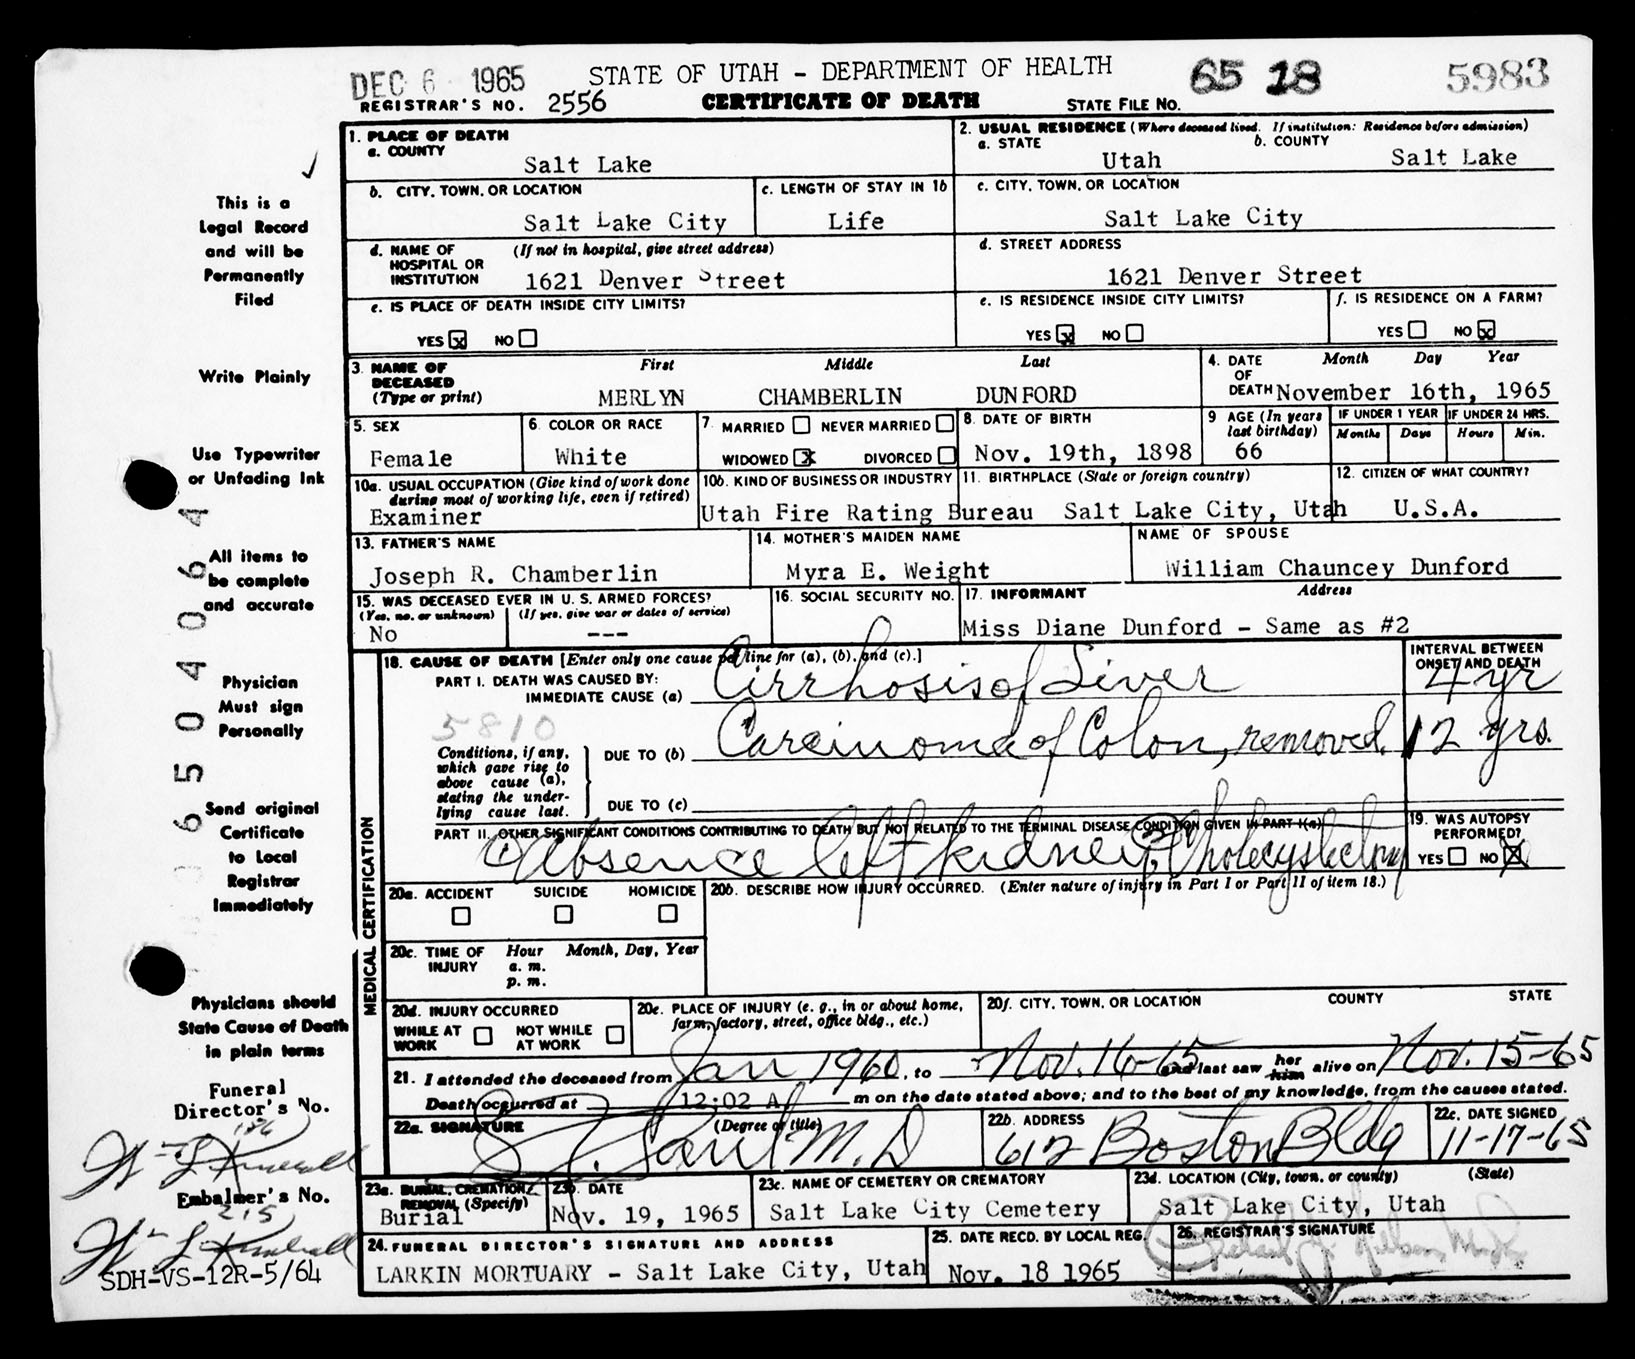 DEC 6 1965 STATE OF UTAH - DEPARTMENT OF HEALTH 65 18 5983
REGISTRAR'S NO. 2556 CERTIFICATE OF DEATH STATE FILE NO.
1. PLACE OF DEATH
a. COUNTY
Salt Lake
2. USUAL RESIDENCE (Where deceased lived. If institution: Residence before admission)
a. STATE b. COUNTY
Utah Salt Lake
b. CITY, TOWN, OR LOCATION
Salt Lake City
c. LENGTH OF STAY IN 1b
Life
c. CITY, TOWN, OR LOCATION
Salt Lake City
d. NAME OF (If not in hospital, give street address)
HOSPITAL OR
INSTITUTION 1621 Denver Street
d. STREET ADDRESS
1621 Denver Street
e. IS PLACE OF DEATH INSIDE CITY LIMITS?
YES x NO
e. IS RESIDENCE INSIDE CITY LIMITS?
YES x NO
f. IS RESIDENCE ON A FARM?
YES NO x
3. NAME OF First Middle Last
DECEASED
(Type or print) MERLYN CHAMBERLIN DUNFORD
4. DATE Month Day Year
OF
DEATH November 16th, 1965
5. SEX
Female
6. COLOR OR RACE
White
7. MARRIED NEVER MARRIED
WIDOWED x DIVORCED
8. DATE OF BIRTH
Nov. 19th, 1898
9 AGE (In years
last birthday)
66
IF UNDER 1 YEAR IF UNDER 24 HRS.
Months Days Hours Min.
10a. USUAL OCCUPATION (Give kind of work done
during most of working life, even if retired)
Examiner
10b. KIND OF BUSINESS OR INDUSTRY
Utah Fire Rating Bureau
11. BIRTHPLACE (State or foreign country)
Salt Lake City, Utah
12. CITIZEN OF WHAT COUNTRY?
U.S.A.
13. FATHER'S NAME
Joseph R. Chamberlin
14. MOTHER'S MAIDEN NAME
Myra E. Weight
NAME OF SPOUSE
William Chauncey Dunford
15. WAS DECEASED EVER IN U. S. ARMED FORCES?
(Yes, no, or unknown) (If yes, give war or dates of service)
No ---
16. SOCIAL SECURITY NO.
17. INFORMANT Address
Miss Diane Dunford - Same as #2
MEDICAL CERTIFICATION
18. CAUSE OF DEATH [Enter only one cause per line for (a), (b), and (c).]
PART I. DEATH WAS CAUSED BY:
IMMEDIATE CAUSE (a) Cirrhosis of Liver
INTERVAL BETWEEN
ONSET AND DEATH
4 yr
5810
Conditions, if any,
which gave rise to
above cause (a),
stating the under-
lying cause last.
DUE TO (b) Carcinoma of Colon, removed. 12 yrs.
DUE TO (c)
PART II. OTHER SIGNIFICANT CONDITIONS CONTRIBUTING TO DEATH BUT NOT RELATED TO THE TERMINAL DISEASE CONDITION GIVEN IN PART I(a)
① Absence left kidney, ② Cholecystectomy
19. WAS AUTOPSY
PERFORMED?
YES NO X
20a. ACCIDENT SUICIDE HOMICIDE
20b. DESCRIBE HOW INJURY OCCURRED. (Enter nature of injury in Part I or Part II of item 18.)
20c. TIME OF Hour Month, Day, Year
INJURY a. m.
p. m.
20d. INJURY OCCURRED
WHILE AT NOT WHILE
WORK AT WORK
20e. PLACE OF INJURY (e. g., in or about home,
farm, factory, street, office bldg., etc.)
20f. CITY, TOWN, OR LOCATION COUNTY STATE
21. I attended the deceased from Jan 1960, to Nov. 16-65 and last saw her him alive on Nov. 15-65
Death occurred at 12:02 A m on the date stated above; and to the best of my knowledge, from the causes stated.
22a. SIGNATURE (Degree or title)
M.D
22b. ADDRESS
612 Boston Bldg
22c. DATE SIGNED
11-17-65
23a. BURIAL, CREMATION,
REMOVAL (Specify)
Burial
23b. DATE
Nov. 19, 1965
23c. NAME OF CEMETERY OR CREMATORY
Salt Lake City Cemetery
23d. LOCATION (City, town, or county) (State)
Salt Lake City, Utah
24. FUNERAL DIRECTOR'S SIGNATURE AND ADDRESS
LARKIN MORTUARY - Salt Lake City, Utah
25. DATE RECD. BY LOCAL REG.
Nov. 18 1965
26. REGISTRAR'S SIGNATURE
This is a
Legal Record
and will be
Permanently
Filed
Write Plainly
Use Typewriter
or Unfading Ink
All items to
be complete
and accurate
Physician
Must sign
Personally
Send original
Certificate
to Local
Registrar
Immediately
Physicians should
State Cause of Death
in plain terms
Funeral
Director's No.
186
Embalmer's No.
215
SDH-VS-12R-5/64
6504064